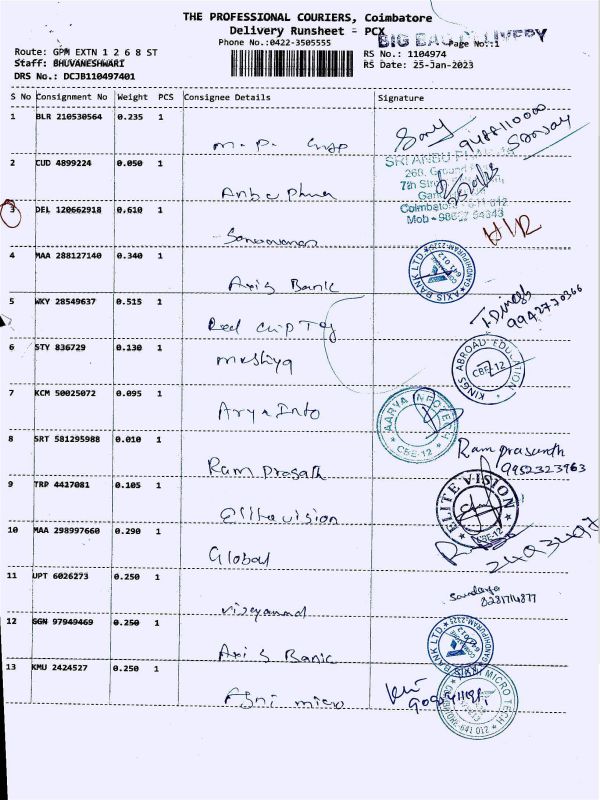 THE PROFESSIONAL COURIERS, Coimbatore
Delivery Runsheet - PCX
Phone No.:0422-3505555
BIG BAG DELIVERY
Page No:1
Route: GPM EXTN 1 2 6 8 ST
Staff: BHUVANESHWARI
DRS No.: DCJB110497401
RS No.: 1104974
RS Date: 25-Jan-2023
S No Consignment No Weight PCS Consignee Details Signature
1 BLR 210530564 0.235 1
2 CUD 4899224 0.050 1
SRI ANBU
7th
Coimbatore 641 012
3 DEL 120662918 0.610 1 Saravanan
4 MAA 288127140 0.340 1 Axis Bank
AXIS BANK LTD
5 WKY 28549637 0.515 1 Red chip
6 STY 836729 0.130 1
KINGS ABROAD EDUCATION
CBE-12
7 KCM 50025072 0.095 1 Arya Info
AARYA INFOTECH
CBE-12
8 SRT 581295988 0.010 1 Ram Prasath
Ram prasanth
9952323963
9 TRP 4427081 0.105 1 Elite vision
ELITE VISION
CBE-12
10 MAA 298997660 0.290 1 Global
11 UPT 6026273 0.250 1
12 GGN 97949469 0.250 1 Axis Bank
AXIS BANK LTD
13 KMU 2424527 0.250 1 Agni micro
MICRO TECH
641 012